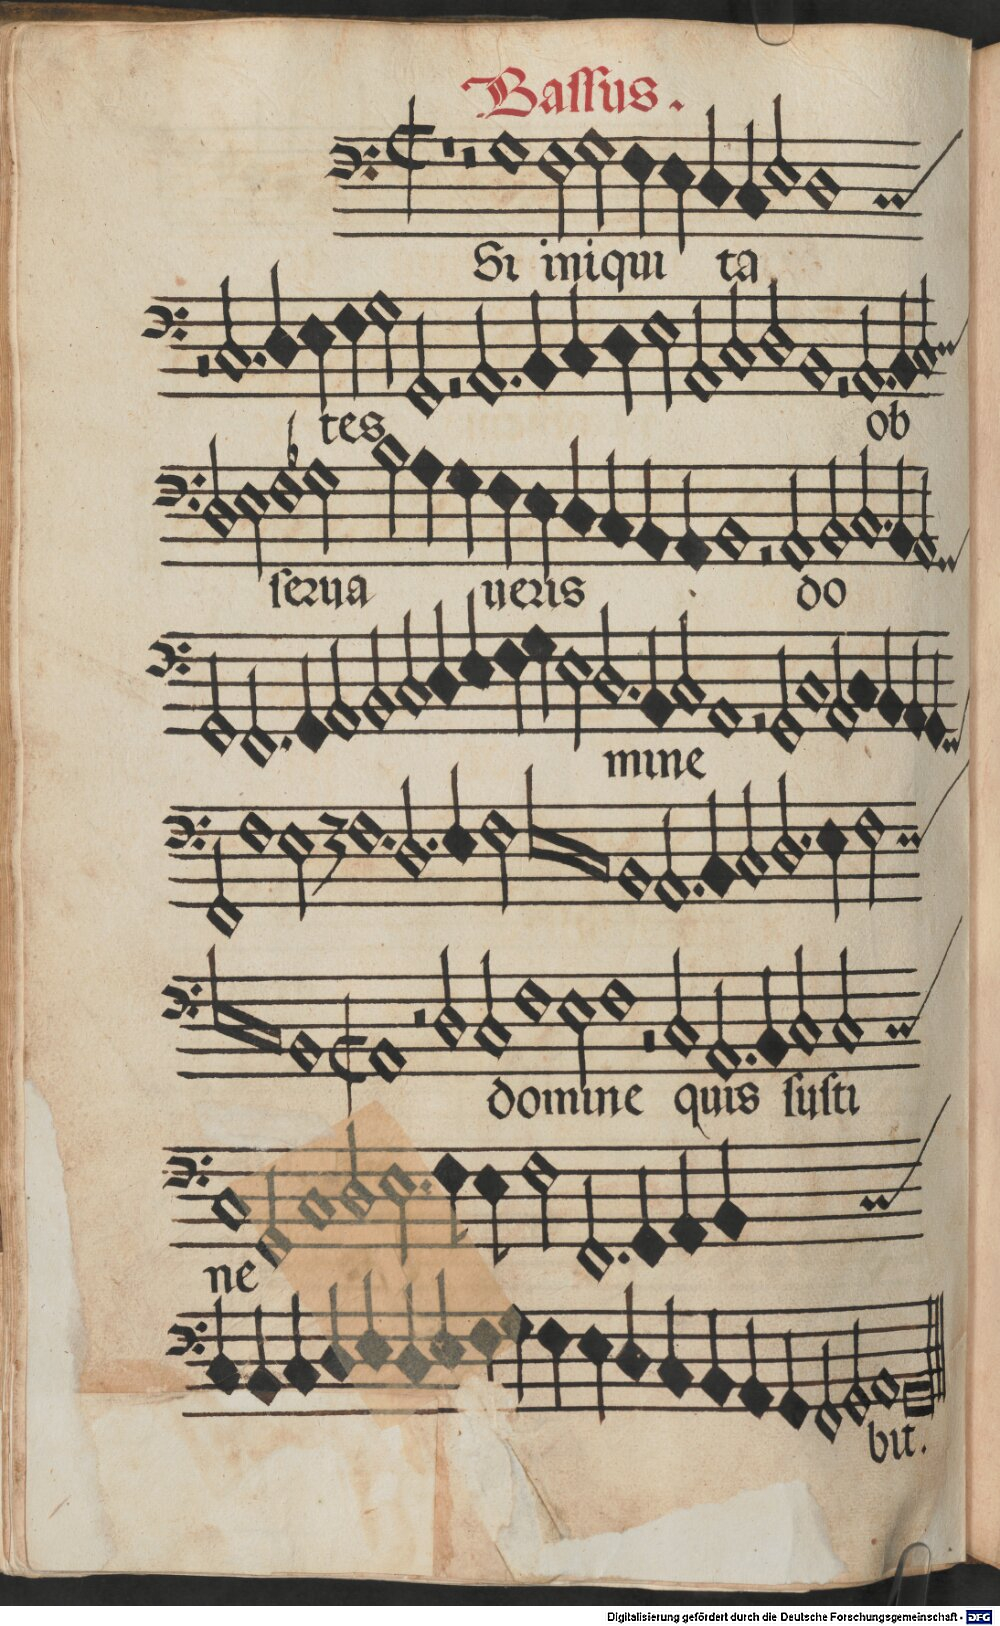 Bassus.
Si iniqui ta
tes ob
serua ueris do
mine
domine quis susti
ne
bit.
Digitalisierung gefördert durch die Deutsche Forschungsgemeinschaft - DFG